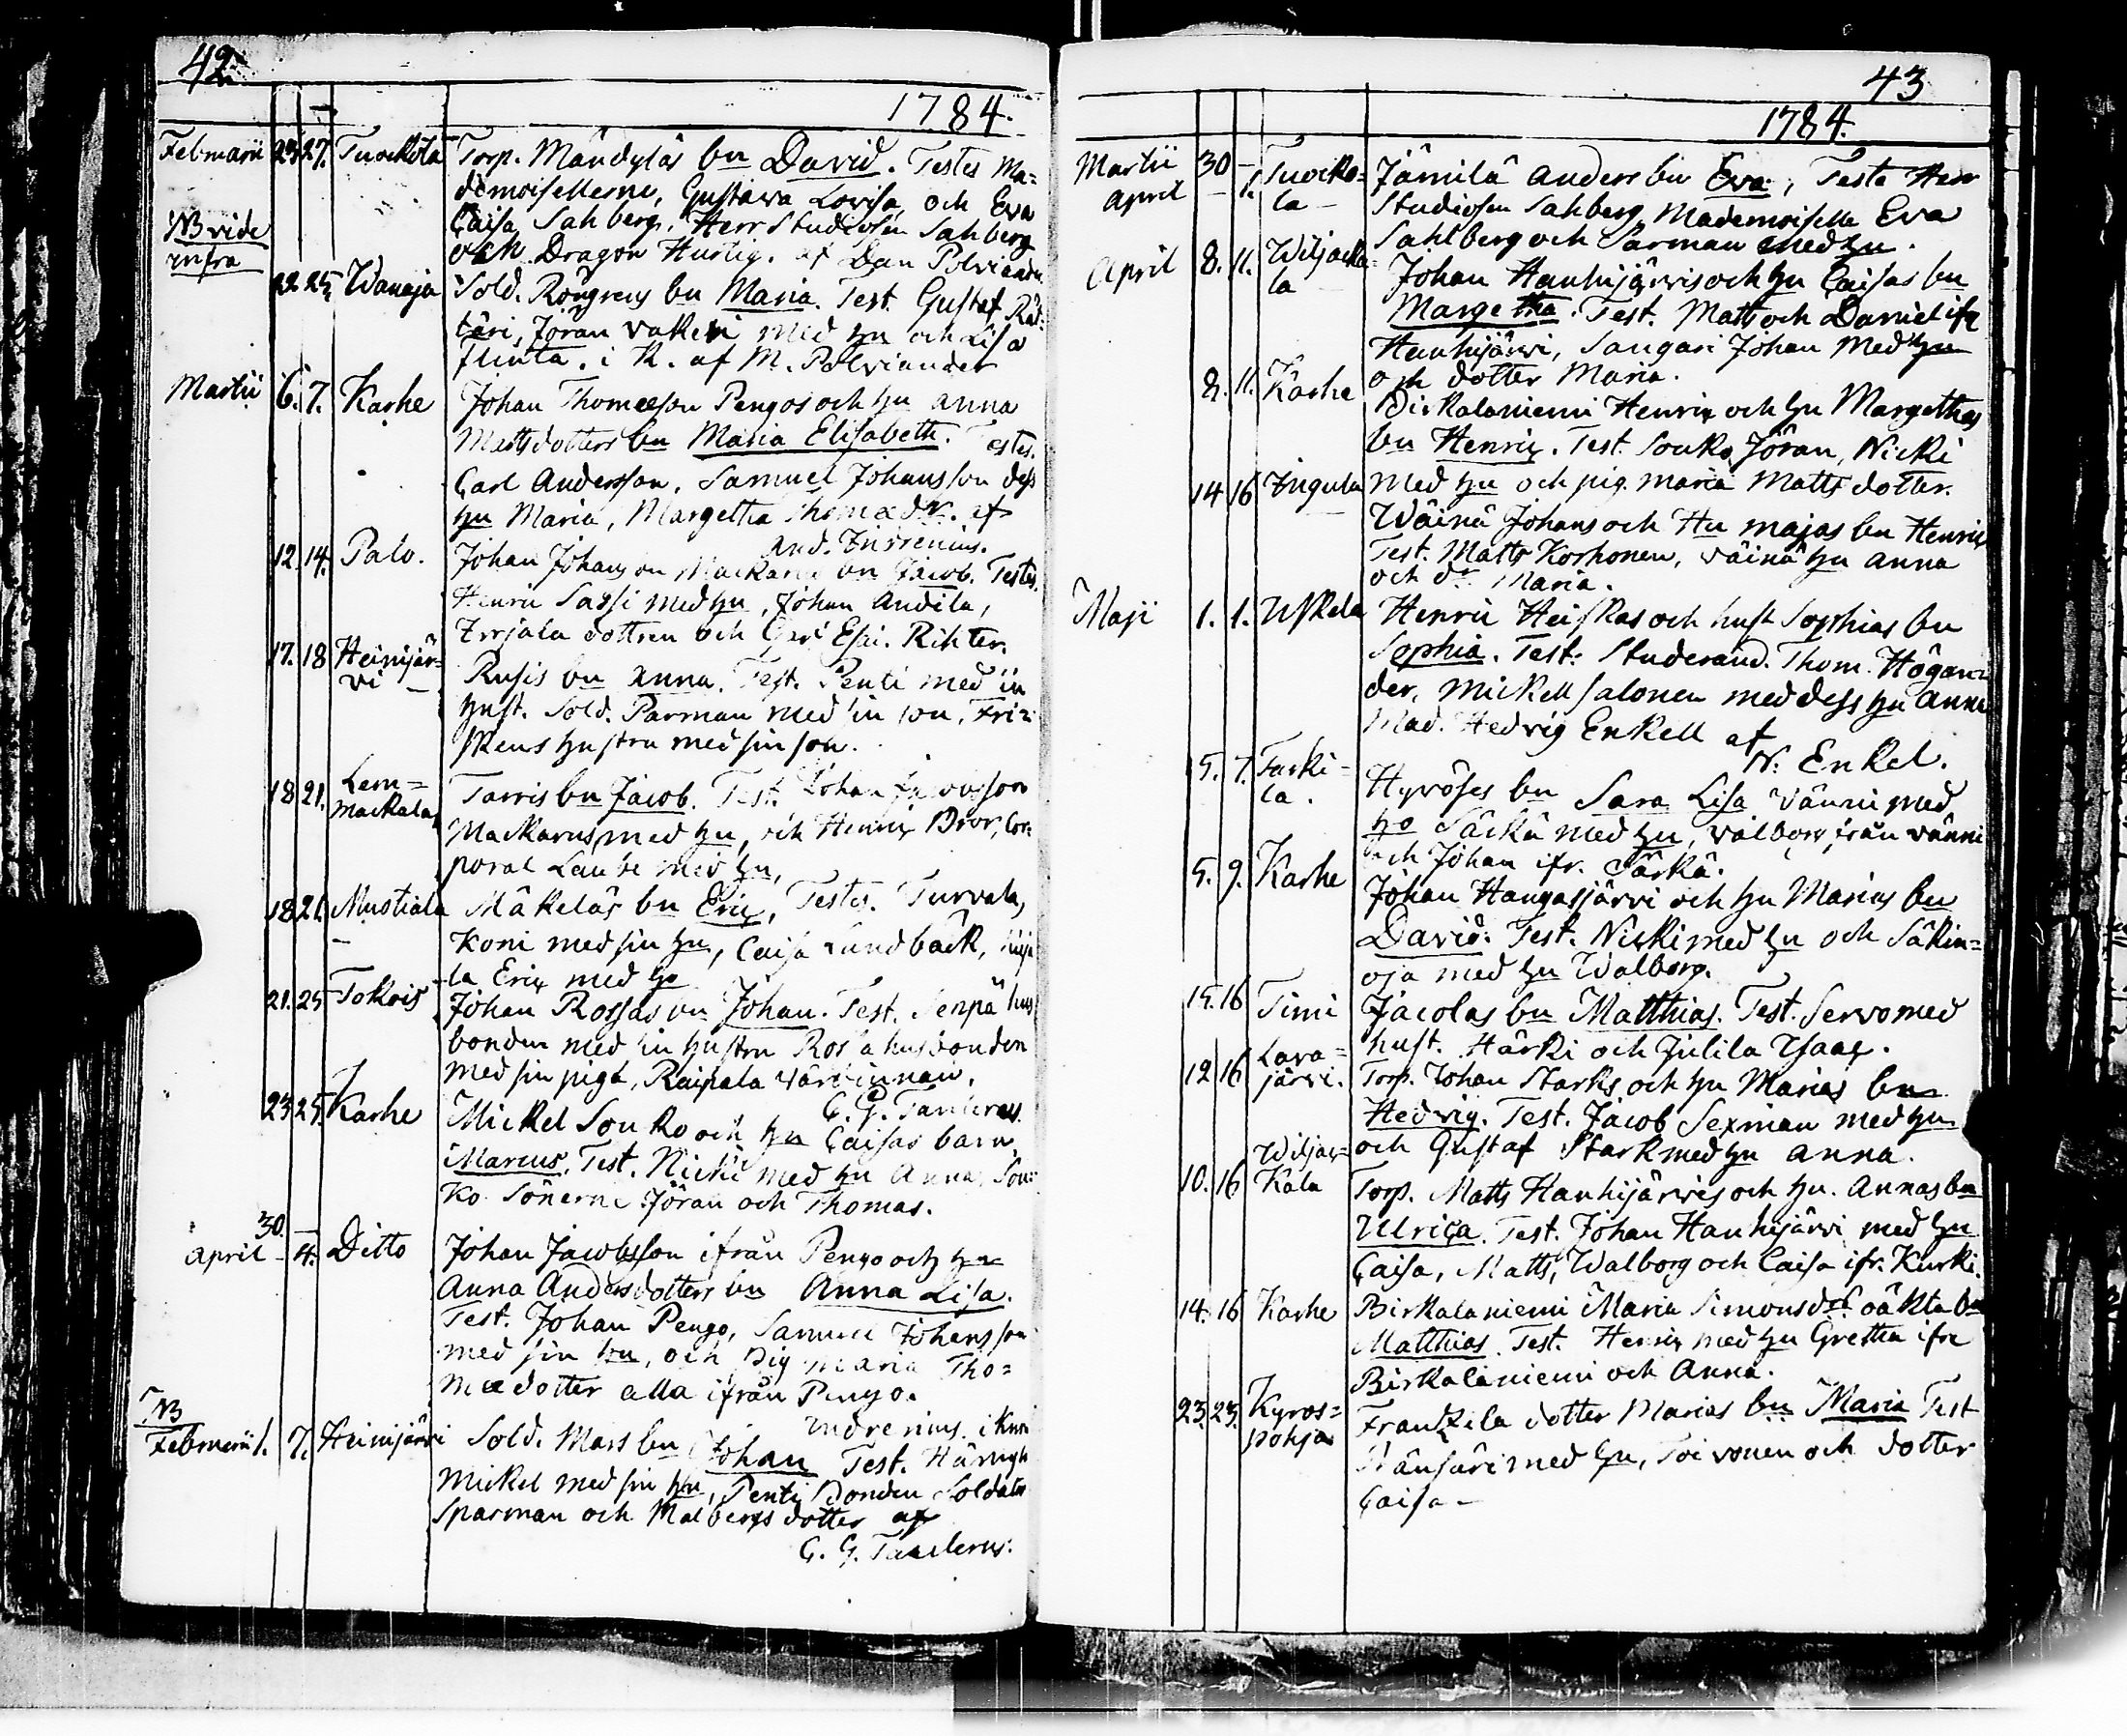 42
1784.
Februarii 23 27. Tuockola Torp. Mändyläs bn David. Testes Ma=
demoisellerne, Gustava Lovisa och Eva
NB vide Caisa Sahberg, Herr Studiosen Sahberg
infra och Dragon Hurtig. af Dan Polviander
22 25 Wanaja Sold. Röngrens bn Maria. Test. Gustaf Rät=
täri, Jöran vakeri med hu och Lisa
flinta. i K. af M. Polviander
Martii 6. 7. Karhe Johan Thomæson Pengos och hu Anna
Mattsdotters bn Maria Elisabeth. Testes.
Carl Andersson, Samuel Johansson dess
hu Maria, Margetha Thomædr. af
And. Indrenius.
12. 14. Palo. Johan Johansson Mackarus bn Jacob. Testes.
Henric Sassi med hu, Johan Andila,
Irrjala dottren och Richter.
17. 18 Heinijär= Rusis bn Anna. Test. Penti med sin
vi – hust. Sold. Parman med sin son, Fri=
skens hustru med sin son.
18 21. Lem= Tarris bn Jacob. Test. Johan Jacobsson
mackala Mackarus med hu, och Henric Bror, Cor=
poral Laube med hu,
18 21. Mustiala Mäkeläs bn Eric, Testes. Turvala,
– Koni med sin hu, Caisa Lundbäck,
la Eric med hu
21. 25 Tokois Johan Rossas bn Johan. Test. Senpä hus
bonden med sin hustru Rossa husbonden
med sin piga, Raipala värdinnan.
C. G. Tanlerus.
23 25. Karhe Mickel Souko och hu Caisas barn
Marcus. Test. Nicki med hu Anna, Sou=
ko Sönerne Jöran och Thomas.
30. –
April – 4. Ditto Johan Jacobsson ifrån Pengo och hu
Anna Andersdotters bn Anna Lisa.
Test. Johan Pengo, Samuel Johansson
med sin hu, och pig Maria Tho=
mædotter alla ifrån Pengo.
NB Indrenius. i Kyro
Februarii 1. 7. Heinijärvi Sold. Mass bn Johan Test.
Mickel med sin hu, Penti Bonden Soldaten
Sparman och Malbergs dotter af
C. G. Tanlerus.
43
1784.
Martii 30 – Tuocko= Jämilä Anders bn Eva, Teste Herr
April – 1. la – Studiosen Sahberg Mademoiselle Eva
Sahlberg och Parman med hu.
April 8. 11. Wiljacka= Johan Hanhijärvis och hu Caisas bn
la – Margetha. Test. Matts och Daniel ifr
Hanhijärvi, Saugari Johan med hu
och dotter Maria.
8. 11. Karhe Birkalaniemi Henric och hu Margethas
bn Henric. Test. Souko Jöran, Nicki
med hu och pig. Maria Matts dotter.
14 16 Ingula Wäinä Johans och Hu Majas bn Henric
Test. Matts Korhonen, Väinä hu Anna
och dr Maria.
Maji 1. 1. Uskela Henric Heiskas och hust Sophias bn
Sophia. Test: Studerand. Thom. Högan=
der, Mickell Salonen med dess hu Anna
Mad. Hedvig Enkell af
N: Enkel.
5. 7. Turki= Hyröses bn Sara Lisa Vänni med
la. hu Särkä med hu, Valborg från Vänni
och Johan ifr. Särkä.
5. 9. Karhe Johan Hangasjärvi och hu Marias bn
David. Test. Nicki med hu och Säkin=
oja med hu Walborg.
15. 16 Timi Jacolas bn Matthias. Test. Servo med
hust. Härki och Julila Isaac.
12 16 Lava= Torp. Johan Starks och hu Marias bn
järvi. Hedvig. Test. Jacob Sexman med hu
och Gustaf Stark med hu Anna.
10. 16 Wiljac= Torp. Matts Hanhijärvis och hu. Annas bn
kala Ulrica. Test. Johan Hanhijärvi med hu
Caisa, Matts, Walborg och Caisa ifr. Kurki.
14. 16 Karhe Birkalaniemi Maria Simonsdr. oäkta bn
Matthias. Test. Henric med hu Gretha ifr
Birkalaniemi och Anna.
23. 23. Kyros= Frantzila dotter Marias bn Maria Test
pohja Wänsäri med hu, Toivonen och dotter
Caisa –